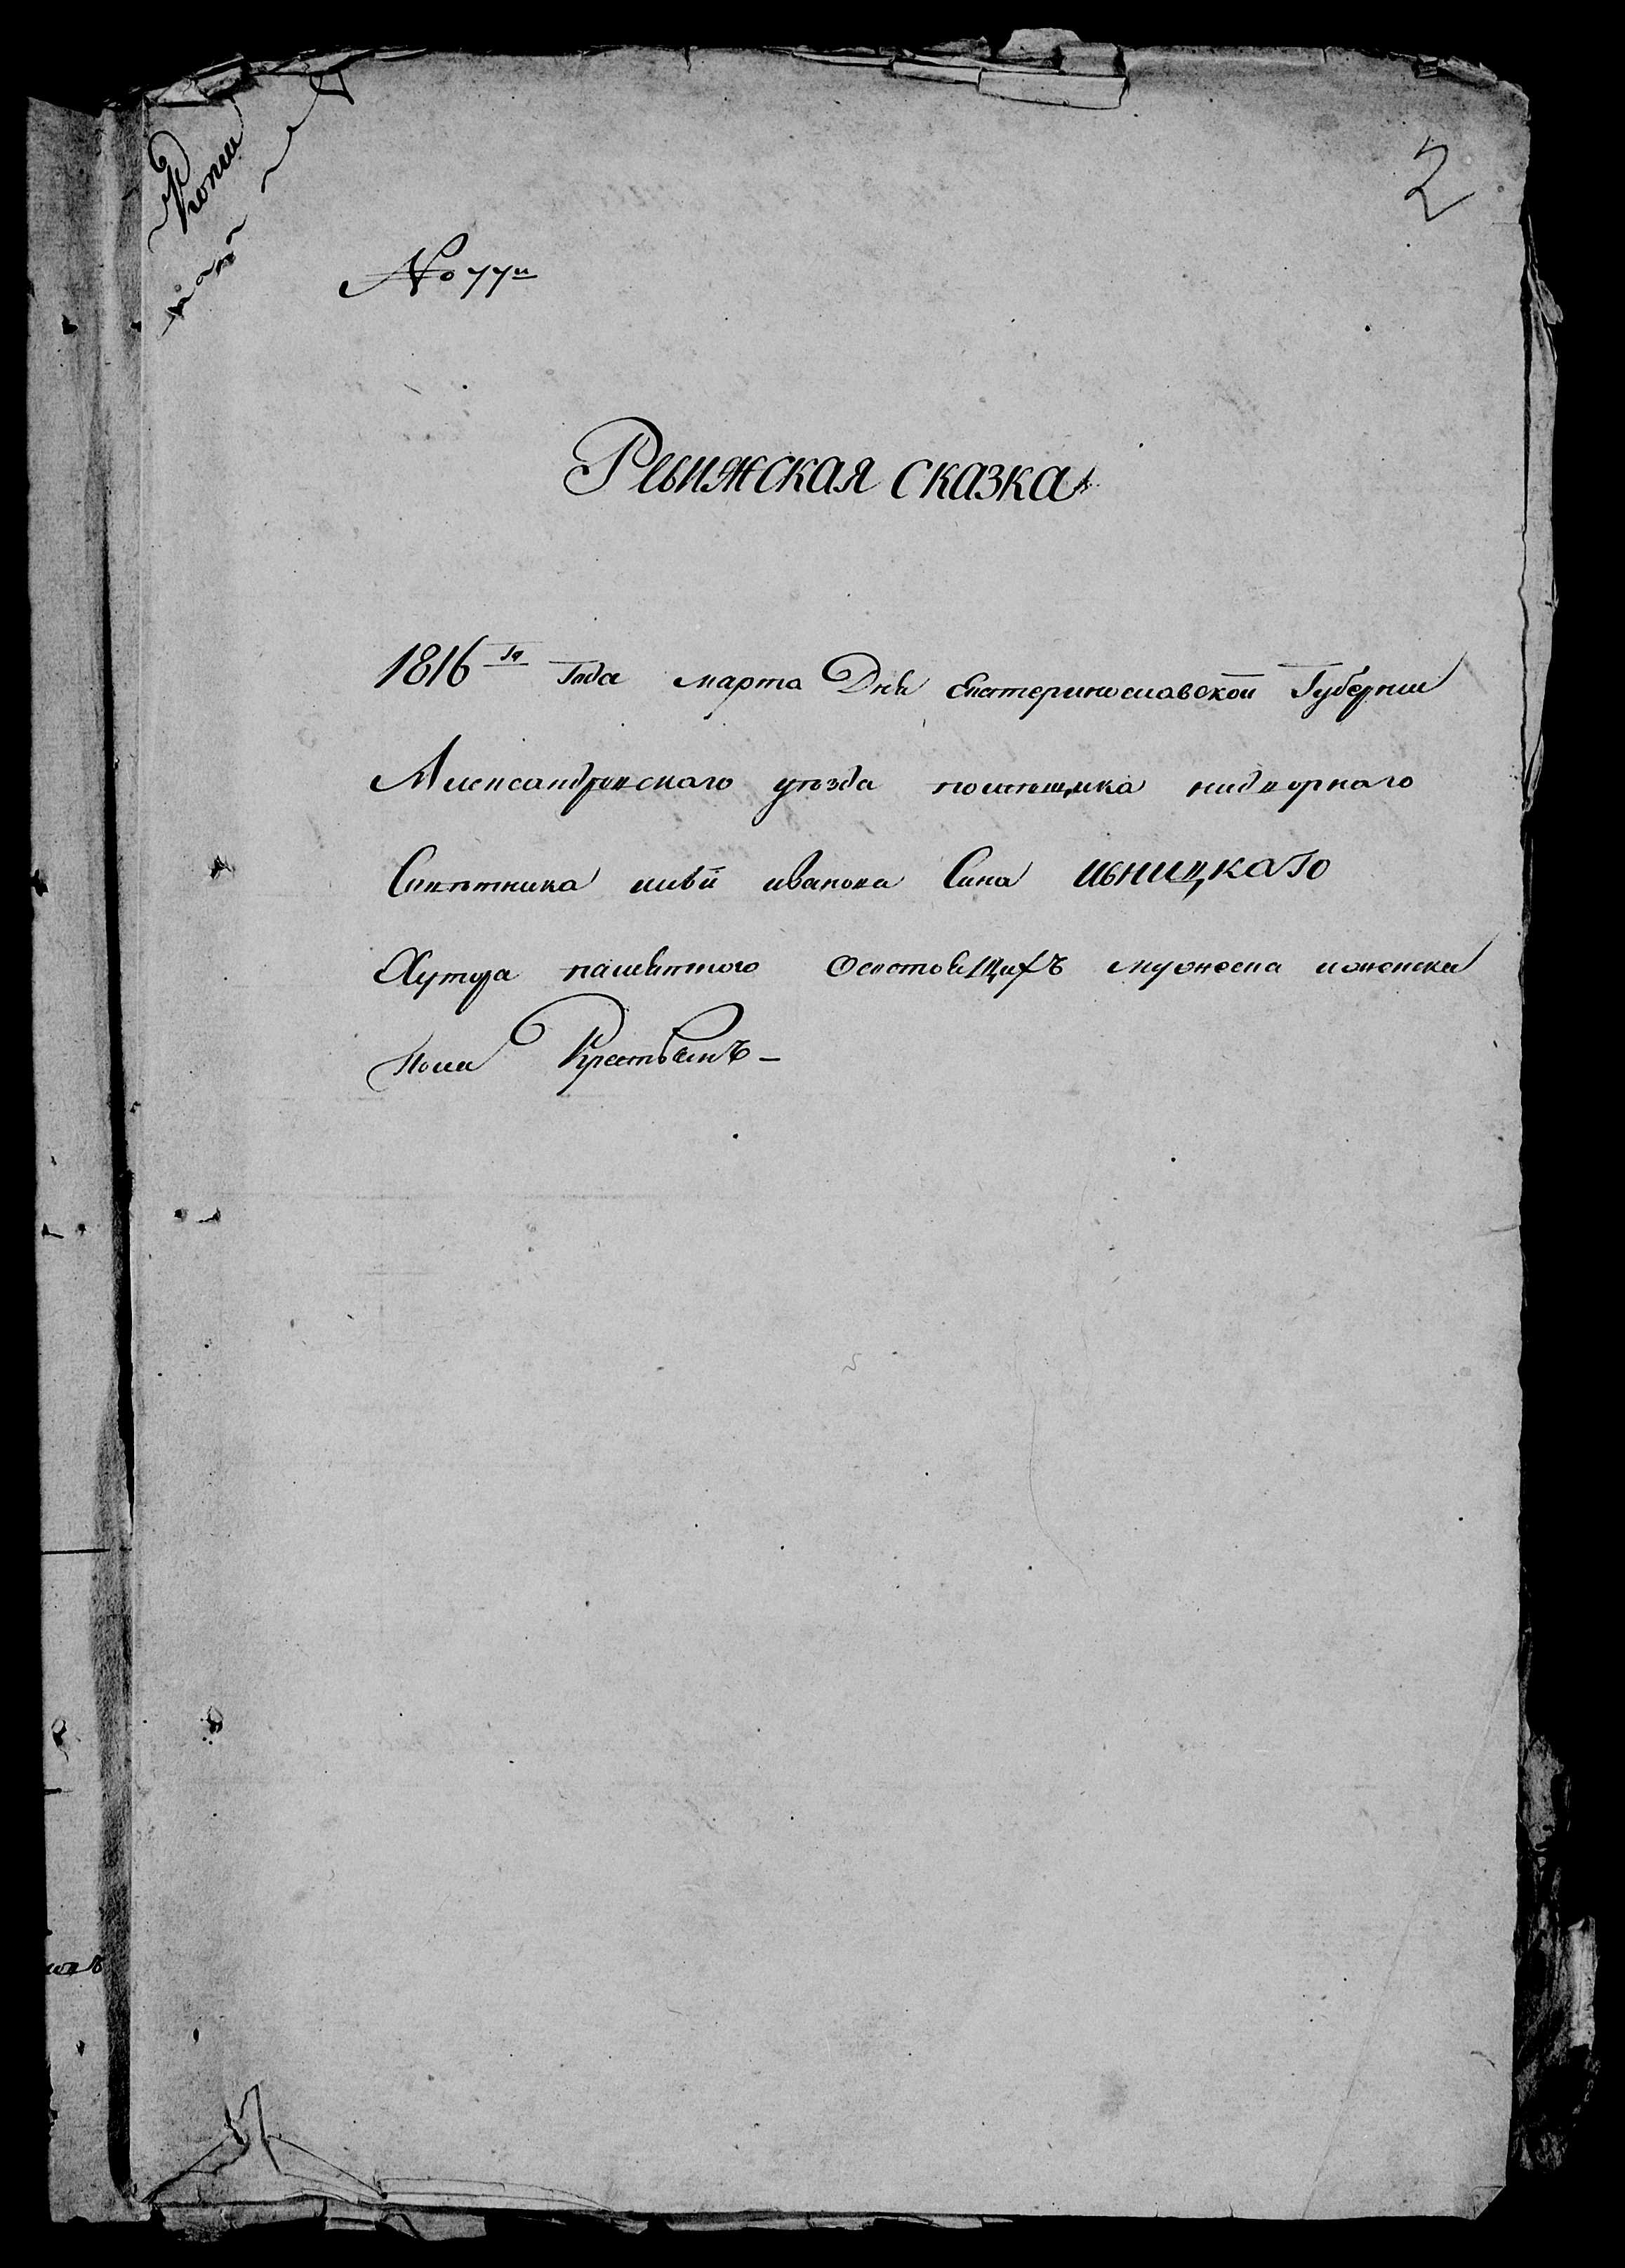 Копия
2
№ 77й
Ревижская сказка
1816го Года марта Дня Екатеринославской Губернии
Александровскаго уезда помещика надворнаго
Советника иванова Сина
Хутора о состоящихъ мужеска и женска
Пола Крестьянъ –